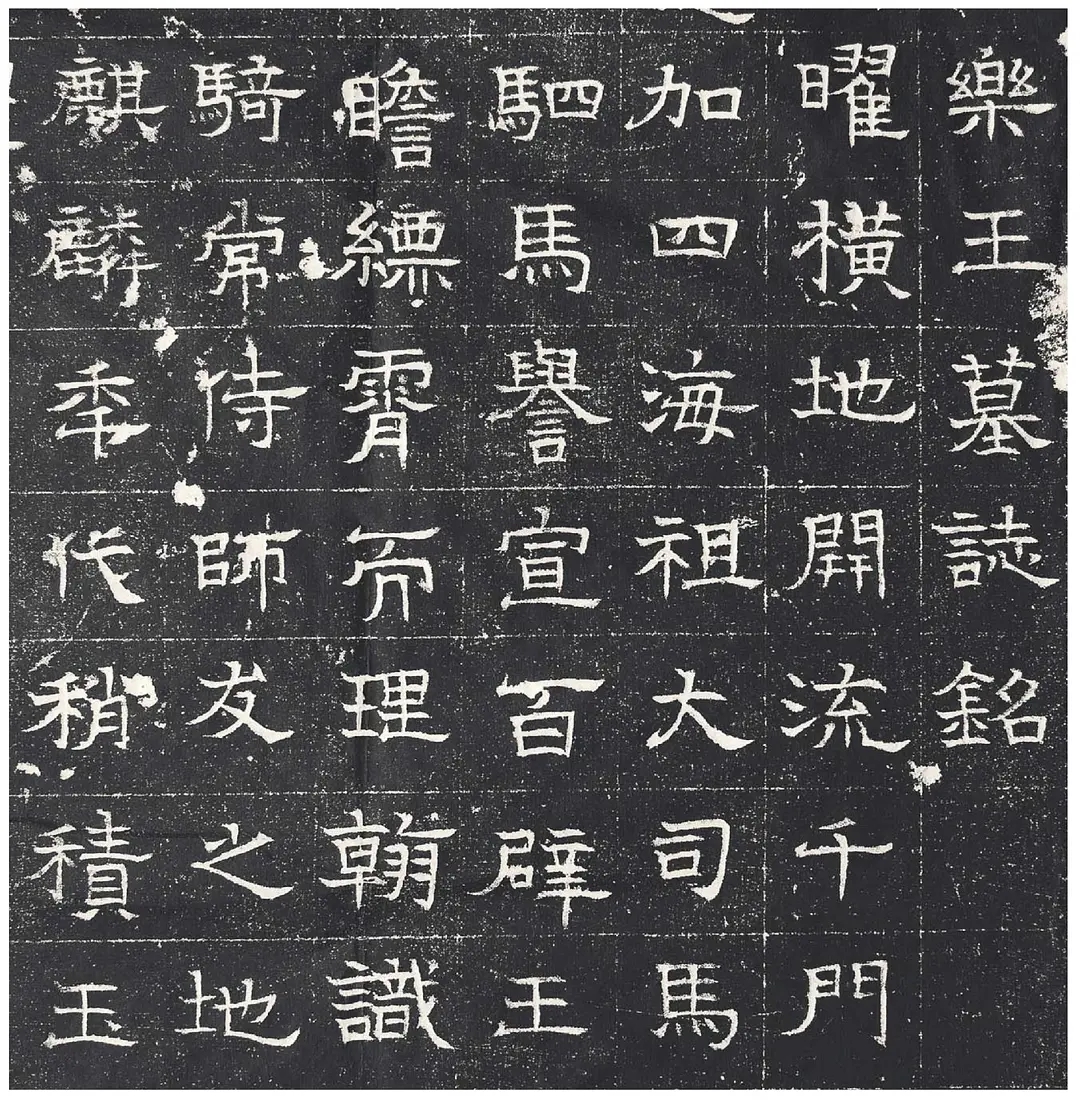 樂王墓誌銘
曜橫地開流千門
加四海祖大司馬
駟馬譽宣百辟王
瞻縹霄而理翰識
騎常侍師友之地
麒麟秊代稍積玉